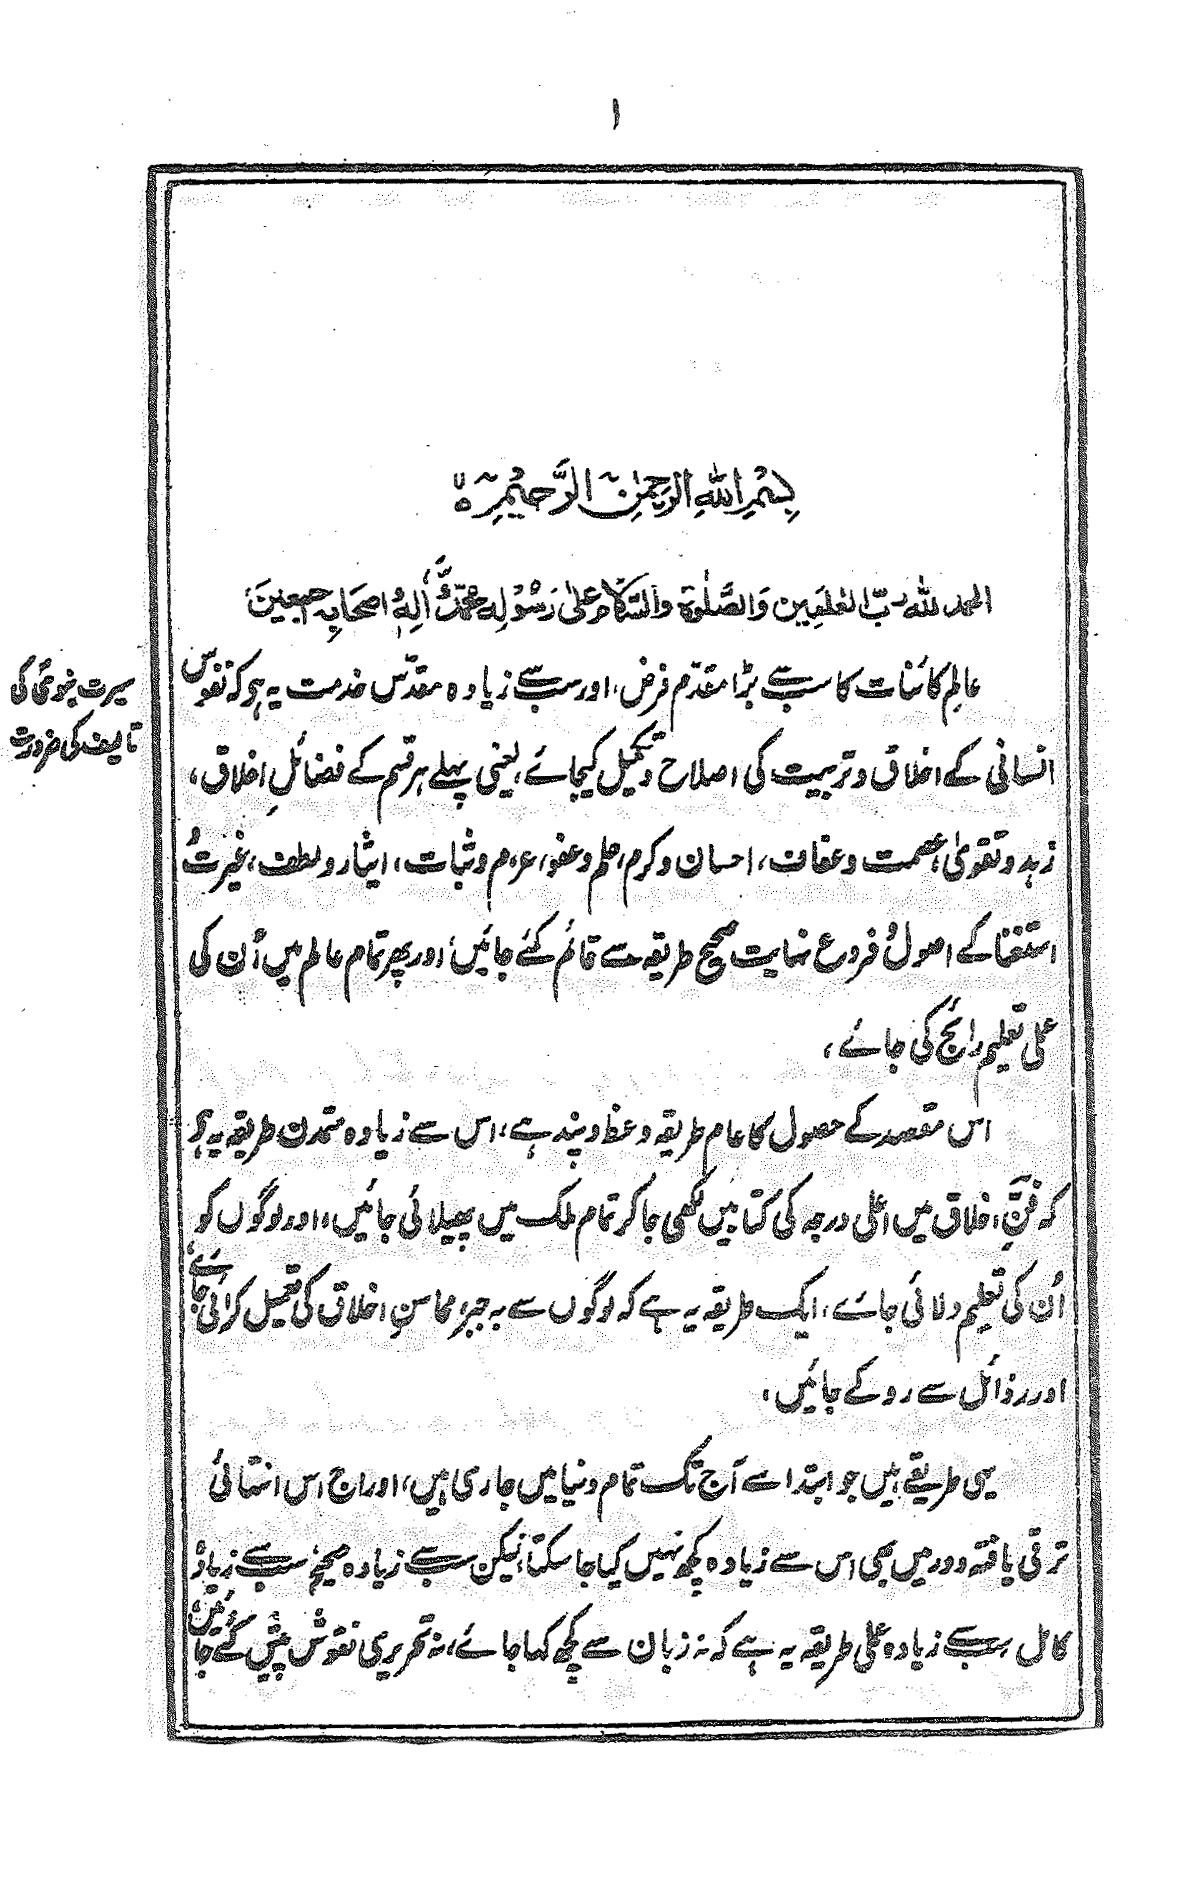 ۱
بِسْمِ اللهِ الرَّحْمٰنِ الرَّحِيْمِ ہ
الحمد لله ربّ العٰلمين وَالصَّلٰوة وَالسَّلام علیٰ رَسُوْلِهٖ محمّدٍ وَّاٰلِهٖ وَاصحَابِهٖ اجمعِينَ
سیرت نبویؐ کی
تالیف کی ضرورت
عالمِ کائنات کا سب سے بڑا مقدّم فرض، اور سب سے زیادہ مقدّس خدمت یہ ہو کہ نفوس
انسانی کے اخلاق و تربیت کی اصلاح و تکمیل کیجائے، یعنی پہلے ہر قسم کے فضائلِ اخلاق،
زہد و تقویٰ، عصمت و عفاف، احسان و کرم، حلم و عفو، عزم و ثبات، ایثار و لطف، غیرت و
استغنا کے اصول و فروع نہایت صحیح طریقہ سے قائم کئے جائیں، اور پھر تمام عالم میں اُن کی
عملی تعلیم رائج کی جائے،
اس مقصد کے حصول کا عام طریقہ وعظ و پند ہے، اس سے زیادہ متمدن طریقہ یہ ہو
کہ فنِّ اخلاق میں اعلیٰ درجہ کی کتابیں لکھی جا کر تمام ملک میں پھیلائی جائیں، اور لوگوں کو
اُن کی تعلیم دلائی جائے، ایک طریقہ یہ ہے کہ لوگوں سے بہ جبر، محاسنِ اخلاق کی تعمیل کرائی جائے
اور رذائل سے روکے جائیں،
یہی طریقے ہیں جو ابتدا سے آج تک تمام دنیا میں جاری ہیں، اور آج اس انتہائی
ترقی یافتہ دور میں بھی اس سے زیادہ کچھ نہیں کیا جا سکتا، لیکن سب سے زیادہ صحیح، سب سے زیادہ
کامل سب سے زیادہ عملی طریقہ یہ ہے کہ نہ زبان سے کچھ کہا جائے، نہ تحریری نقوش پیش کئے جائیں